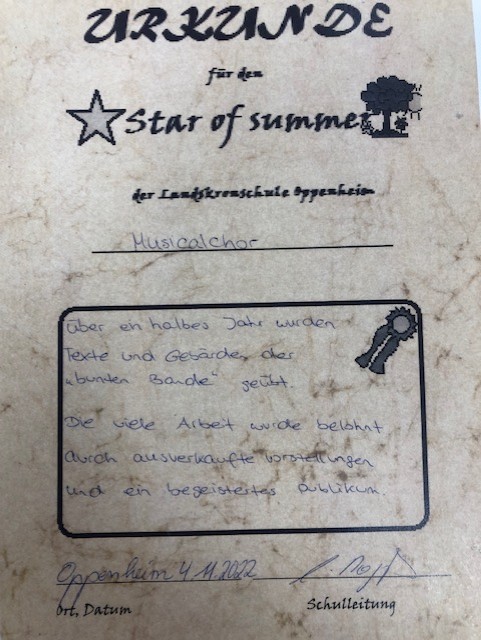 URKUNDE
für den
Star of summer
der Landskronschule Oppenheim
Musicalchor
über ein halbes Jahr wurden
Texte und Gebärden der
"bunten Bande" geübt.
Die viele Arbeit wurde belohnt
durch ausverkaufte Vorstellungen
und ein begeistertes Publikum.
Oppenheim 4.11.2022
Ort, Datum
Schulleitung